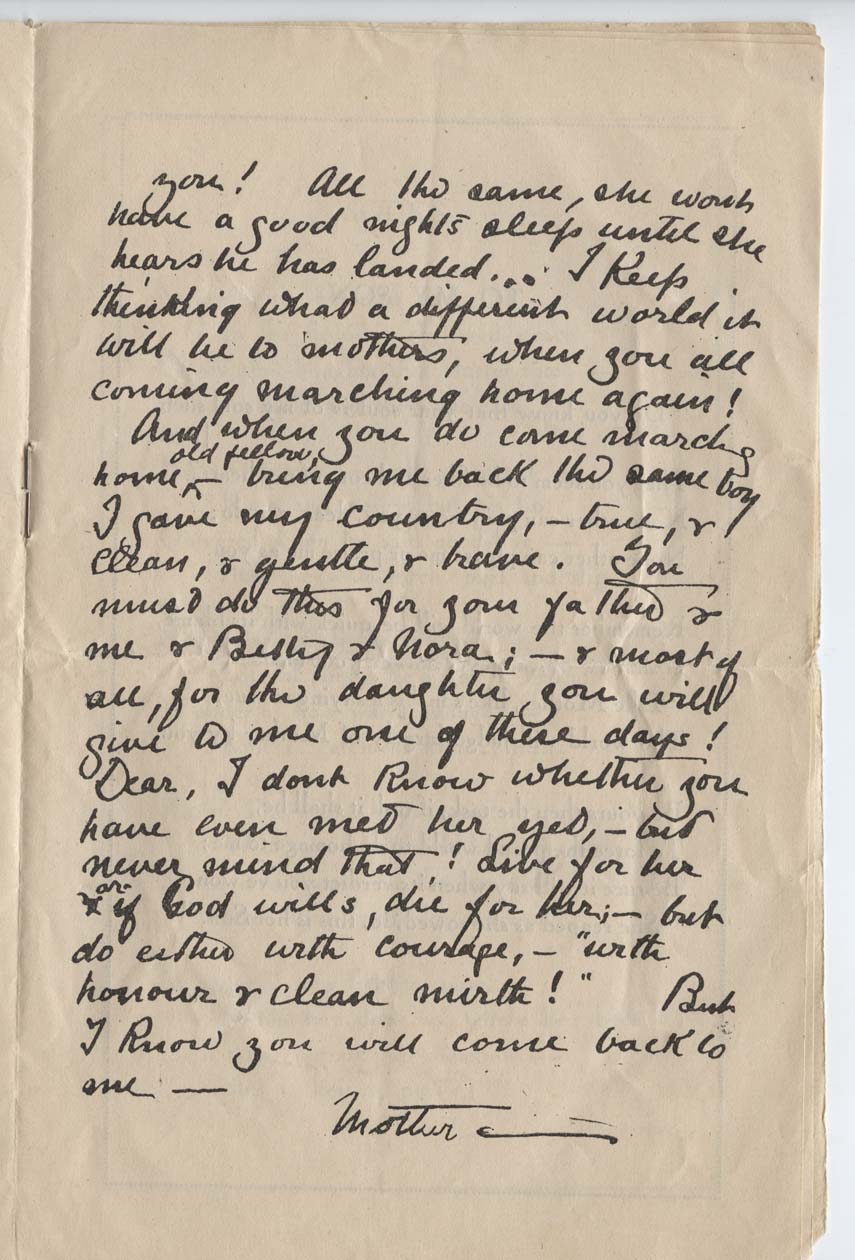 you! All the same, she wont
have a good nights sleep until she
hears he has landed... I Keep
thinking what a different world it
will be to mothers, when you all
coming marching home again!
And when you do come marching
home, old fellow, – bring me back the same boy
I gave my country, – true, &
clean, & gentle, & brave. You
must do this for your father &
me & Betty & Nora; – & most of
all, for the daughter you will
give to me one of these days!
Dear, I dont Know whether you
have even met her yet, – but
never mind that! Live for her
or if God wills, die for her; – but
do either with courage, – "with
honour & clean mirth!" But
I Know you will come back to
me –
Mother